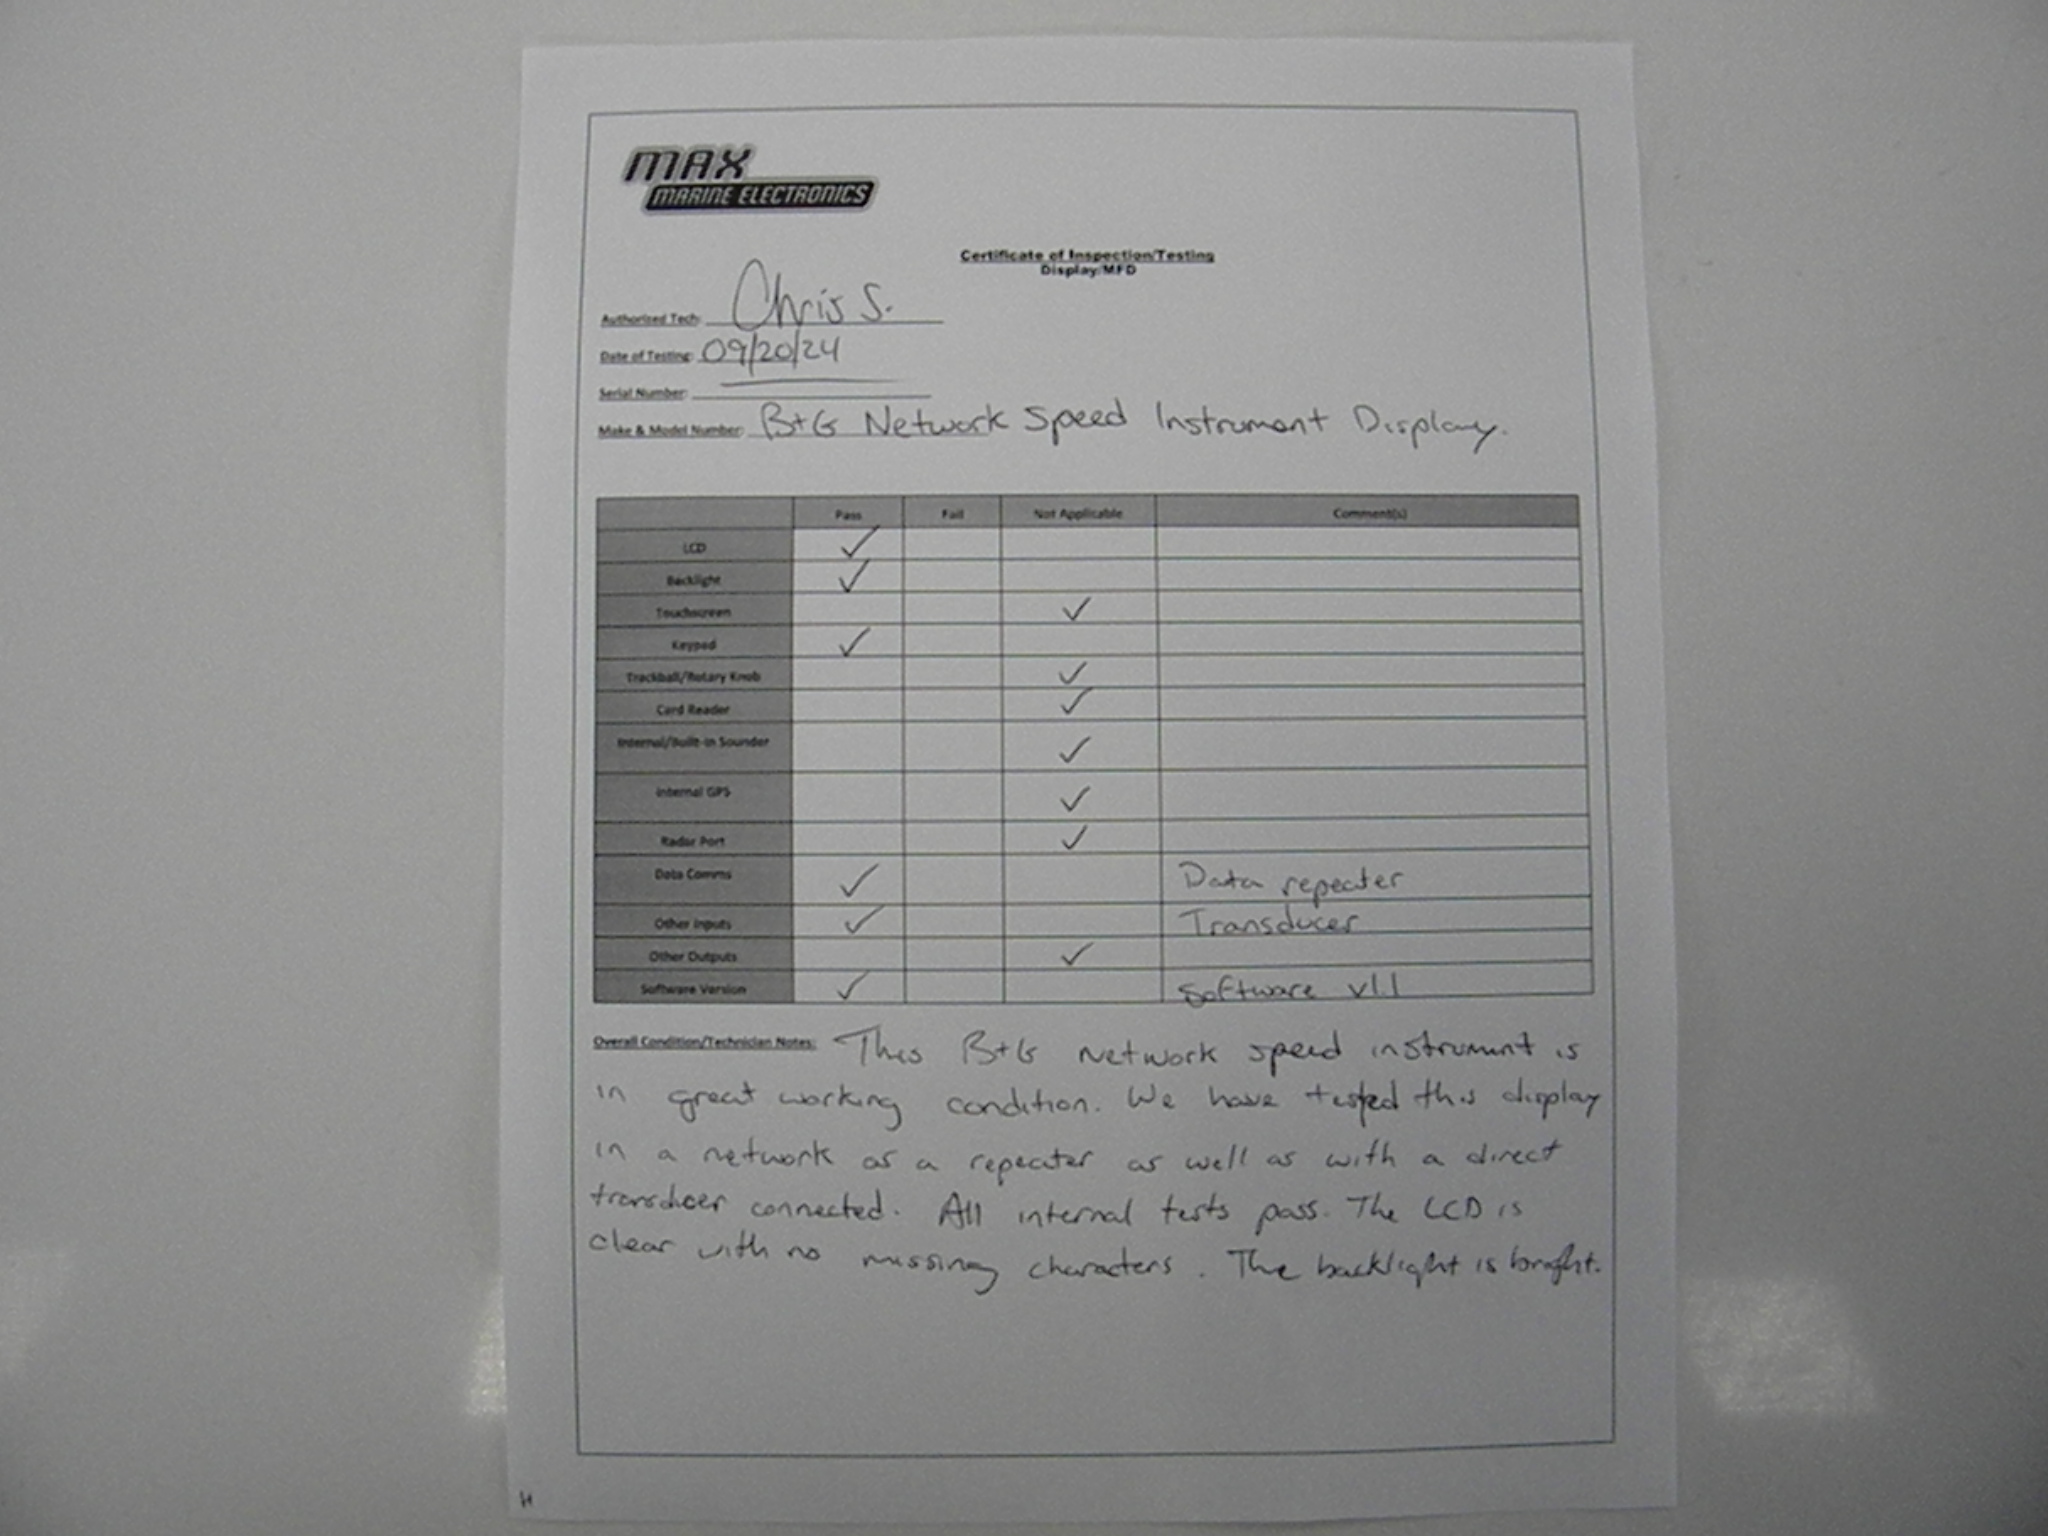 MAX
MARINE ELECTRONICS
Certificate of Inspection/Testing
Display/MFD
Authorized Tech: Chris S.
Date of Testing: 09/20/24
Serial Number:
Make & Model Number: B+G Network Speed Instrument Display.
Pass Fail Not Applicable Comment(s)
LCD ✓
Backlight ✓
Touchscreen ✓
Keypad ✓
Trackball/Rotary Knob ✓
Card Reader ✓
Internal/Built-in Sounder ✓
Internal GPS ✓
Radar Port ✓
Data Comms ✓ Data repeater
Other Inputs ✓ Transducer
Other Outputs ✓
Software Version ✓ Software v1.1
Overall Condition/Technician Notes: This B+G Network speed instrument is
in great working condition. We have tested this display
in a network as a repeater as well as with a direct
transducer connected. All internal tests pass. The LCD is
clear with no missing characters. The backlight is bright.
H